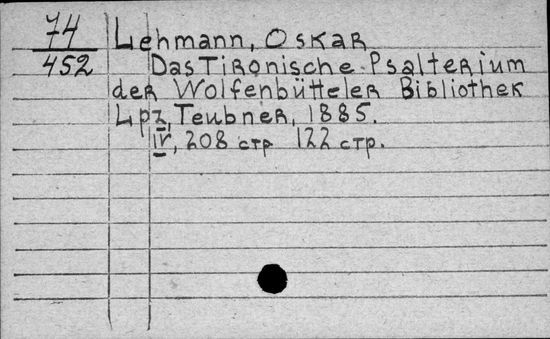 74
452
Lehmann, Oskar
Das Tironische Psalterium
der Wolfenbütteler Bibliothek
Lpz, Teubner, 1885.
IV, 208 стр 122 стр.